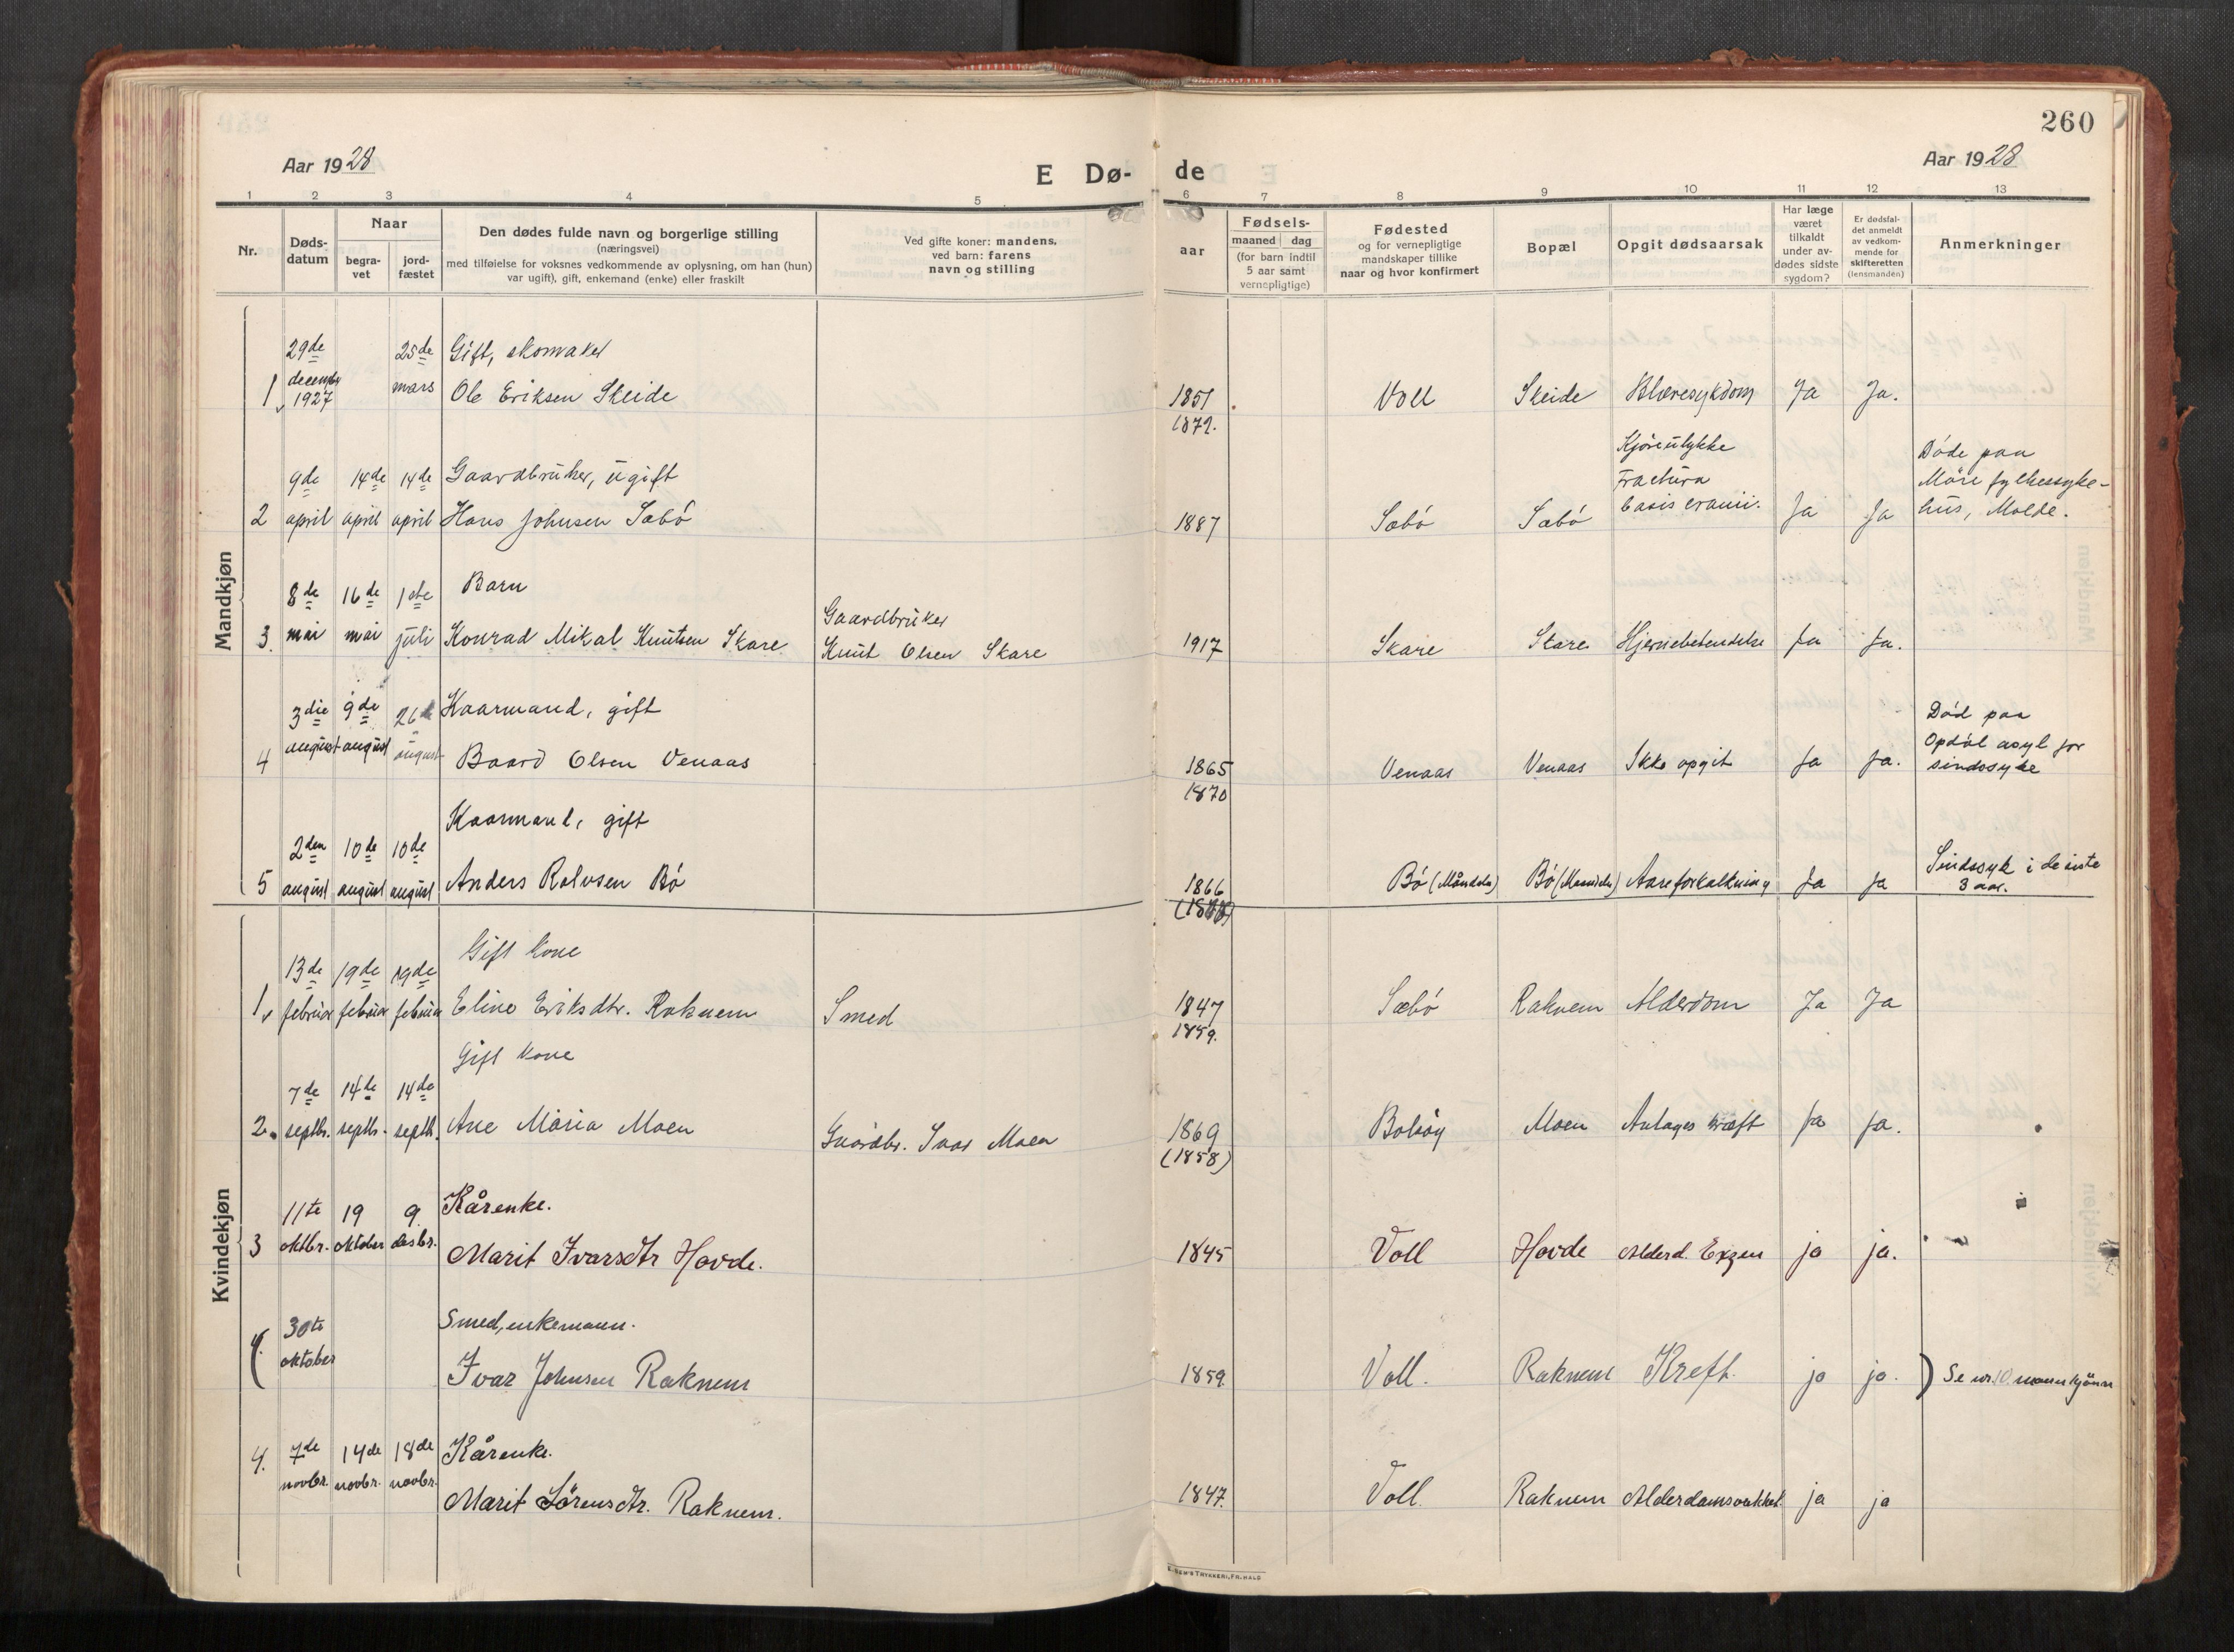 260
Aar 1928
E Dø-
de
Aar 1928
1 2 3 4 5 6 7 8 9 10 11 12 13
Nr.
Døds-
datum
Naar
begra-
vet
jord-
fæstet
Den dødes fulde navn og borgerlige stilling
(næringsvei)
med tilføielse for voksnes vedkommende av oplysning, om han (hun)
var ugift, gift, enkemand (enke) eller fraskilt
Ved gifte koner: mandens,
ved barn: farens
navn og stilling
aar
Fødsels-
maaned dag
(for barn indtil
5 aar samt
vernepligtige)
Fødested
og for vernepligtige
mandskaper tillike
naar og hvor konfirmert
Bopæl
Opgit dødsaarsak
Har læge
været
tilkaldt
under av-
dødes sidste
sygdom?
Er dødsfal-
det anmeldt
av vedkom-
mende for
skifteretten
(lensmanden)
Anmerkninger
Mandkjøn
29de 25de Gift, skomaker
1 decembr 1927 mars Ole Eriksen Skeide 1851 Voll Skeide Blæresykdom Ja Ja.
1872.
Kjøreulykke Døde paa
9de 14de 14de Gaardbruker, ugift Fractura Möre fylkessyke-
2 april april april Hans Johnsen Sæbö 1887 Sæbö Sæbö basis cranii. Ja Ja hus, Molde.
8de 16de 1ste Barn Gaardbruker
3. mai mai juli Konrad Mikal Knutsen Skare Knut Olsen Skare 1917 Skare Skare Hjernebetendelse Ja Ja.
3die 9de 26de Kaarmand, gift Död paa
4 august august august Baard Olsen Venaas 1865 Venaas Venaas Ikke opgit Ja Ja. Opdöl asyl for
1870 sindssyke
2den 10de 10de Kaarmand, gift
5 august august august Anders Rolvsen Bö 1866 Bö (Måndaln) Bö (Maandaln) Aareforkalkning Ja Ja Sindssyk i de siste
3 aar.
Kvindekjøn
13de 19de 19de Gift kone
1 februar februar februar Eline Eriksdtr. Raknem Smed 1847 Sæbö Raknem Alderdom Ja Ja
1859.
7de 14de 14de Gift kone
2. septbr. septbr. septbr. Ane Maria Moen Gaardbr. Ivar Moen 1869 Bolsöy Moen Antages kræft Ja Ja.
(1858)
11te 19 9. Kårenke.
3 oktbr. oktober desbr. Marit Ivarsdtr Hovde. 1845 Voll Hovde Alderd. Exzem ja ja.
30te Smed, enkemann.
(4. oktober Ivar Johnsen Raknem 1859. Voll. Raknem Kreft. ja ja. ) Se nr. 10. mannkjönn
7de 14de 18de Kårenke.
4. novbr. novbr. novbr. Marit Sörensdtr. Raknem. 1847. Voll. Raknem Alderdomssvekket ja ja